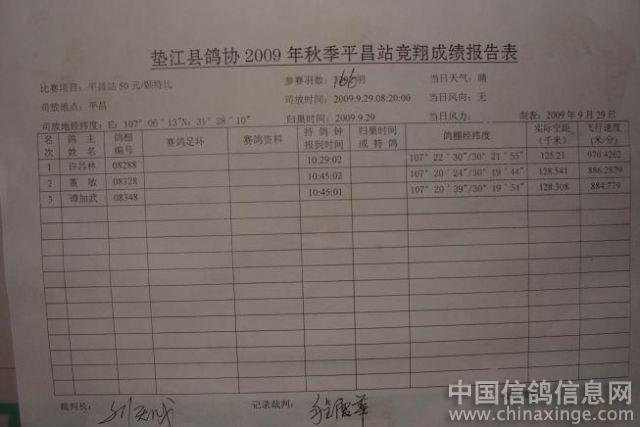 垫江县鸽协 2009 年秋季平昌站竞翔成绩报告表
比赛项目：平昌站 50 元/颗特比 参赛羽数：166羽 当日天气：晴
司放地点：平昌 司放时间：2009.9.29.08:20:00 当日风向：无
司放地经纬度：E：107°06′13″N：31°28′10″ 归巢时间：2009.9.29 当日风力： 制表：2009 年 9 月 29 日
名次 鸽主姓名 鸽棚编号 赛鸽足环 赛鸽资料 持鸽钟报到时间 归巢时间或持鸽 鸽棚经纬度 实际空距（千米） 飞行速度（米/分）
1 许昌林 08288 10:29:02 107°22′30″/30°21′55″ 125.21 970.4262
2 董敏 08328 10:45:02 107°20′24″/30°19′44″ 128.541 886.2879
3 谭加武 08348 10:45:01 107°20′39″/30°19′54″ 128.308 884.779
裁判长： 记录裁判：
中国信鸽信息网
www.chinaxinge.com